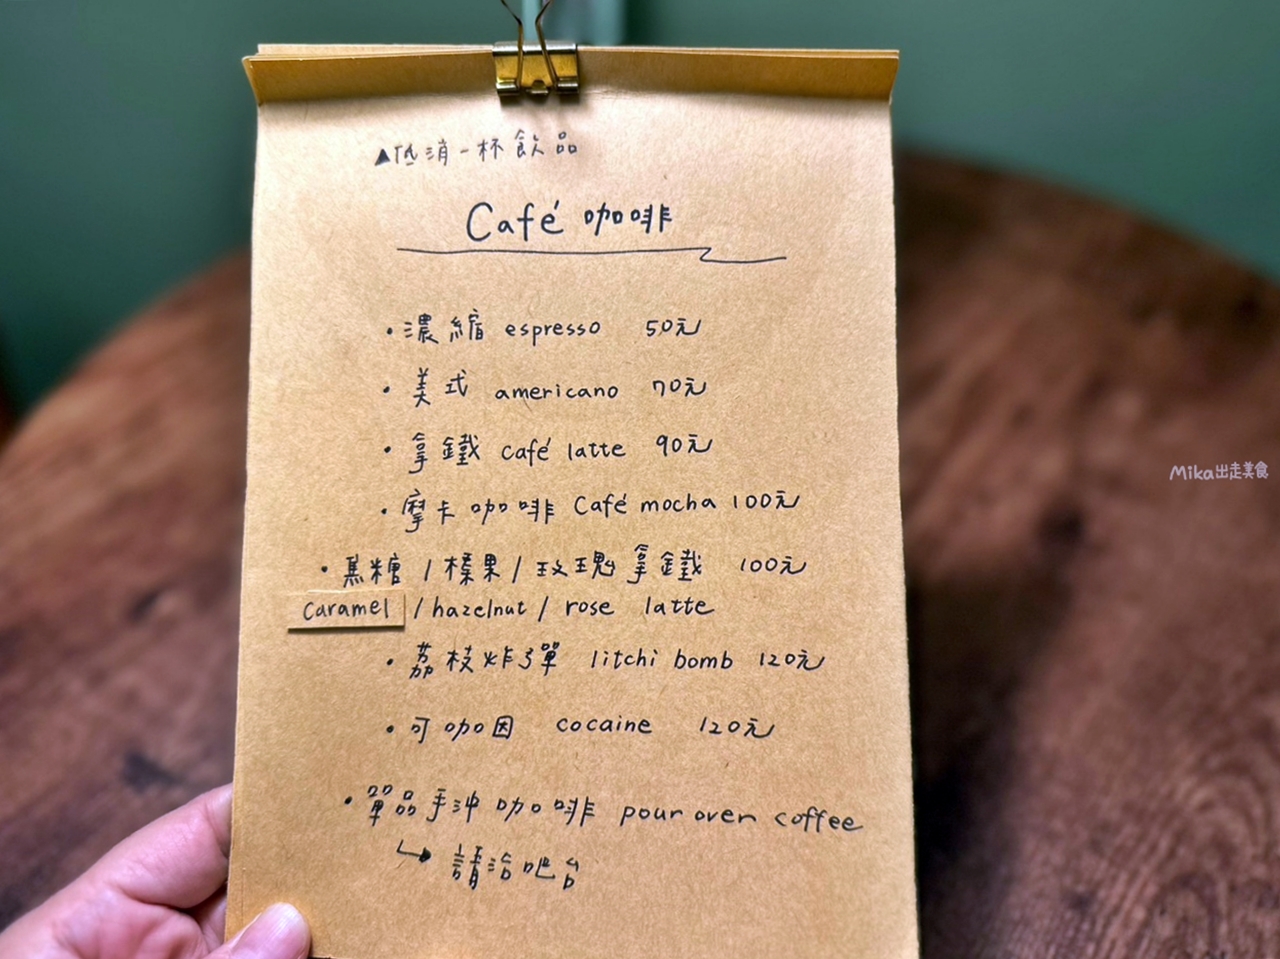 ▲低消一杯飲品
Café 咖啡
・濃縮 espresso 50元
・美式 americano 70元
・拿鐵 café latte 90元
・摩卡咖啡 Café mocha 100元
・焦糖 / 榛果 / 玫瑰拿鐵 100元
caramel / hazelnut / rose latte
・荔枝炸彈 litchi bomb 120元
・可咖因 cocaine 120元
・單品手沖咖啡 pour over coffee
↳ 請洽吧台
Mika出走美食